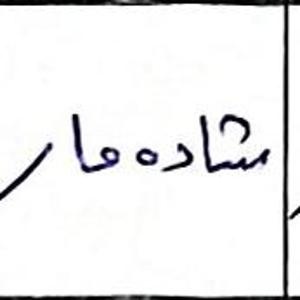 شاده مار